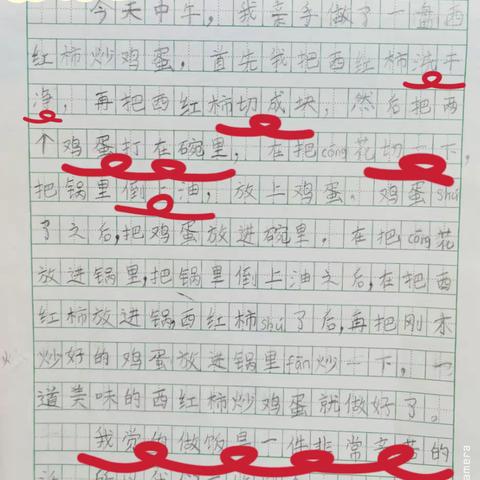 今天中午，我亲手做了一盘西
红柿炒鸡蛋，首先我把西红柿洗干
净，再把西红柿切成块，然后把两
个鸡蛋打在碗里，在把cōng花切一下，
把锅里倒上油，放上鸡蛋。鸡蛋shú
了之后，把鸡蛋放进碗里。在把cōng花
放进锅里，把锅里倒上油之后，在把西
红柿放进锅，西红柿shú了后，再把刚才
炒好的鸡蛋放进锅里fān炒一下，一
道美味的西红柿炒鸡蛋就做好了。
我觉的做饭是一件非常辛苦的